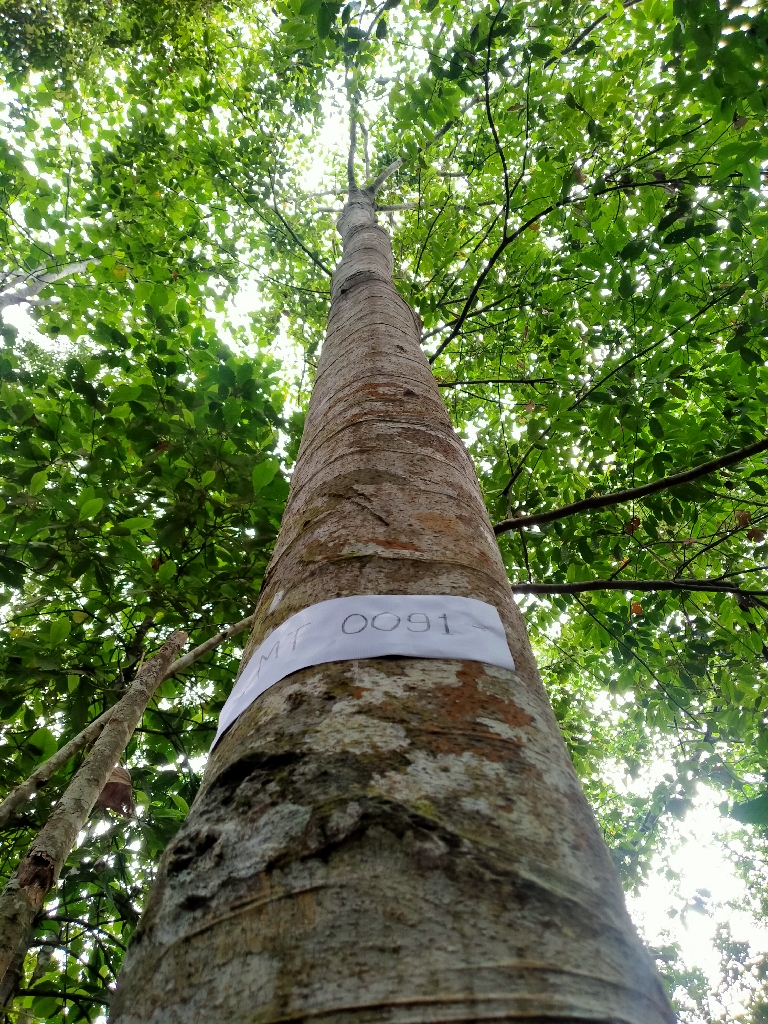 MT 0091